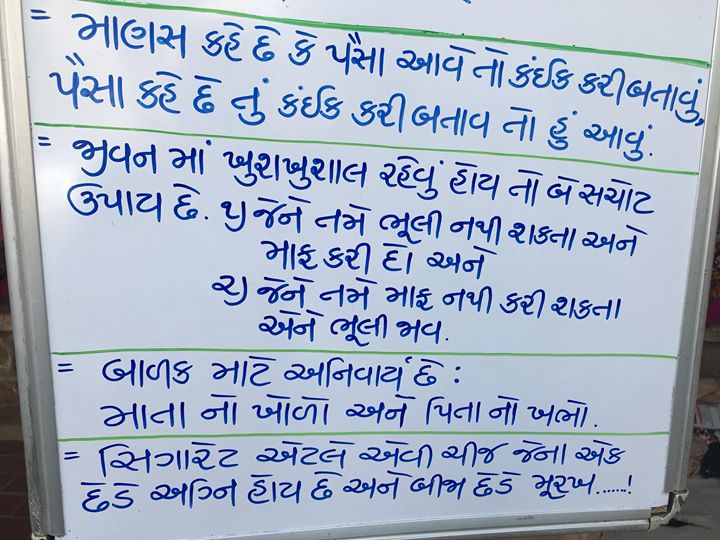 = માણસ કહે છે કે પૈસા આવે તો કંઈક કરી બતાવું,
પૈસા કહે છે તું કંઈક કરી બતાવ તો હું આવું.
= જીવન માં ખુશખુશાલ રહેવું હોય તો બે સચોટ
ઉપાય છે. ૧) જેને તમે ભૂલી નથી શકતા એને
માફ કરી દો અને
૨) જેને તમે માફ નથી કરી શકતા
એને ભૂલી જાવ.
= બાળક માટે અનિવાર્ય છે :
માતા નો ખોળો અને પિતા નો ખભો.
= સિગારેટ એટલે એવી ચીજ જેના એક
છેડે અગ્નિ હોય છે અને બીજા છેડે મૂરખ......!